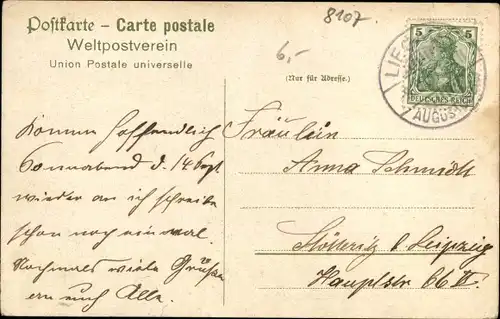 Postkarte – Carte postale
Weltpostverein
Union Postale universelle
8107.
6,-
(Nur für Adresse.)
5 5
DEUTSCHES REICH
LIE
AUGUS
Kommen hoffendlich
Sonnabend d. 14 Sept.
wieder an ich schreibe
schon noch ein mal.
Nochmals viele Grüße
an euch Alle.
Fräulein
Anna Schmidt
Stötteritz b Leipzig
Hauptstr 66 II